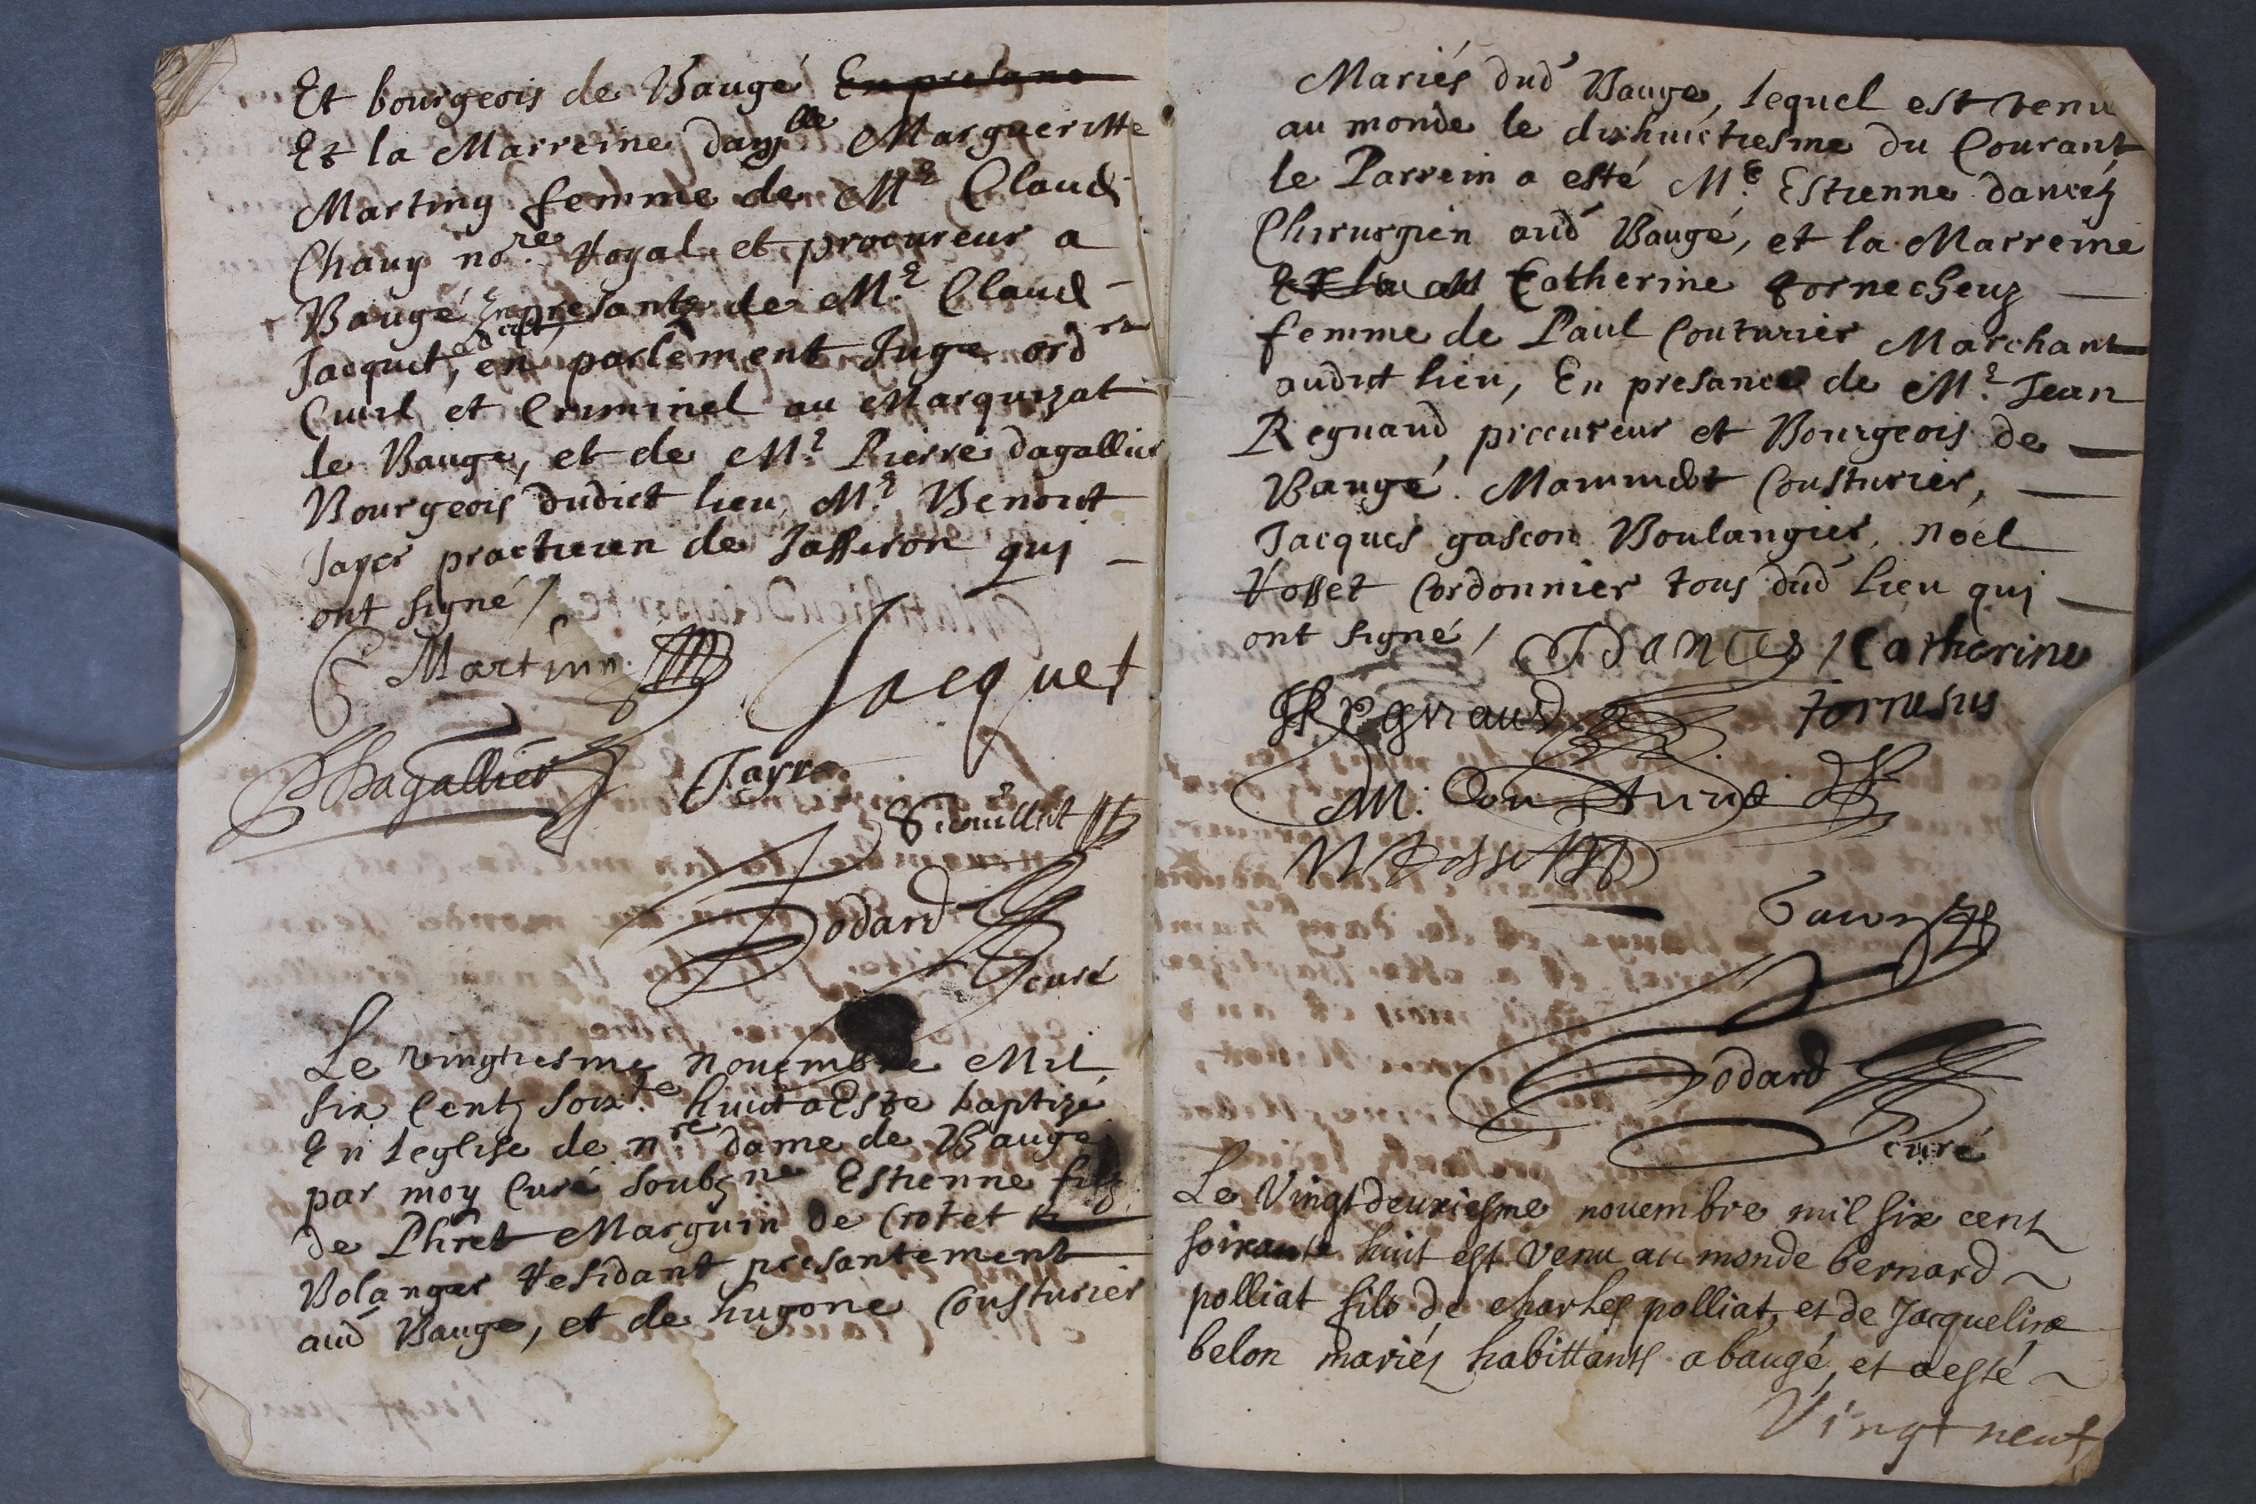 Et bourgeois de Baugé En presanc
Et la Marreine damlle Margueritte
Martiny femme de Me Claud
Chauy nore Royal et procureur a
Baugé En presants de Me Claud
Jacquet, advat en parlement Juge ordre
Civil et Criminel au Marquizat
de Bauge, et de Me Pierre dagallier
Bourgeois dudict lieu, Me Benoist
Jayer practicien de qui
ont signé /
Martinn Jacquet
Dagallier Jayr
Godard
curé
Le vingtiesme novembre Mil
six Centz soixte huict a Este baptizé
En leglise de nre dame de Bauge
par moy Curé soubzne Estienne filz
de Marguin de Crotet
Bolanger Residant presantement
aud Bauge, et de hugone Cousturier
Mariés dud Bauge, lequel est venu
au monde le dixhuictiesme du Courant
le Parrein a esté Me Estienne dancez
Chirurgien aud Baugé, et la Marreine
Et la M Catherine fornecheuz
femme de Paul Couturier Marchant
audict lieu, En presance de Me Jean
Regnaud procureur et Bourgeois de
Baugé. Mammert Cousturier,
Jacques gascon Boulangier, Noel
Rosset Cordonnier tous dud lieu qui
ont signé / Dancez / Catherine
Regnaud fornesus
M. Cousturie
N Rosset
Godard
curé
Le Vingtdeuxiesme novembre mil six cent
soixante huit est Venu au monde bernard
polliat fils de charles polliat, et de Jacqueline
belon mariez habittants a baugé, et a esté
Vingt neuf